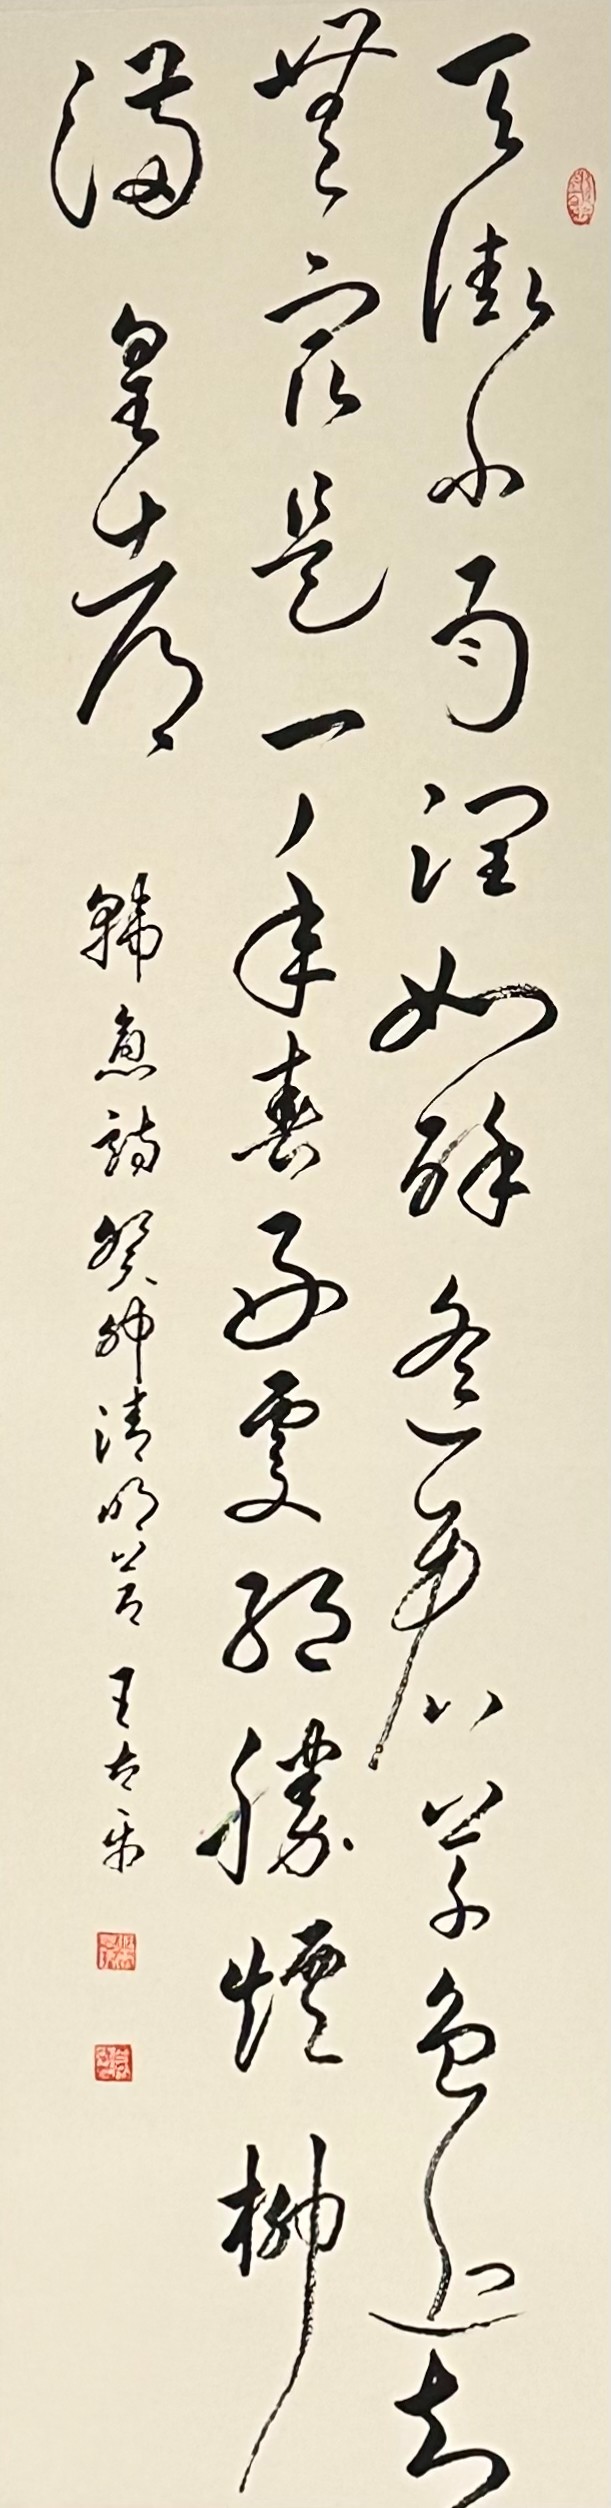 天街小雨润如酥遙看草色近却
無最是一年春好處絕勝煙柳
滿皇都
韓愈詩癸卯清明 王